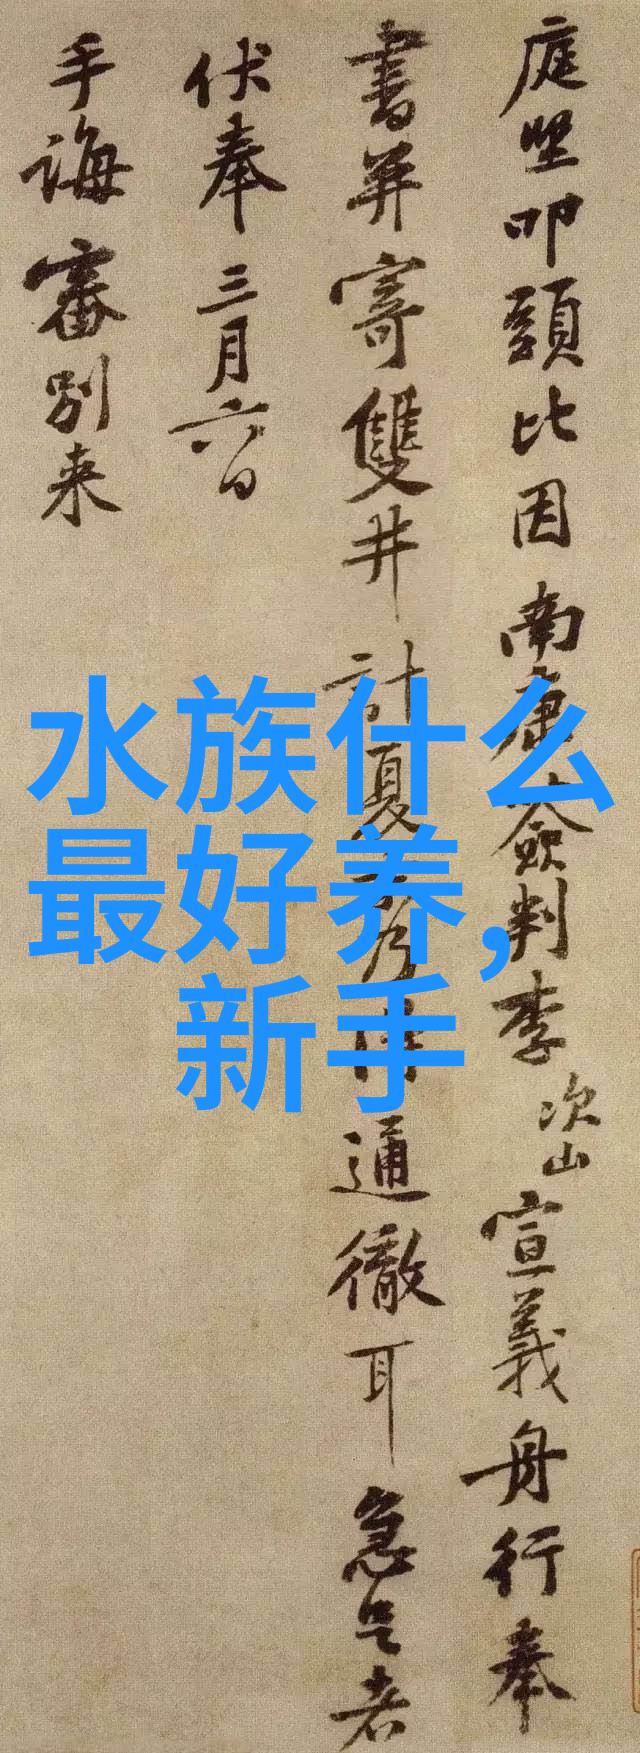 庭坚叩頭比因南康簽判李次山宣義舟行奉
書并寄雙井計夏
通徹耳急足者
伏奉三月六日
手誨審別来
水族什么
最好养，
新手